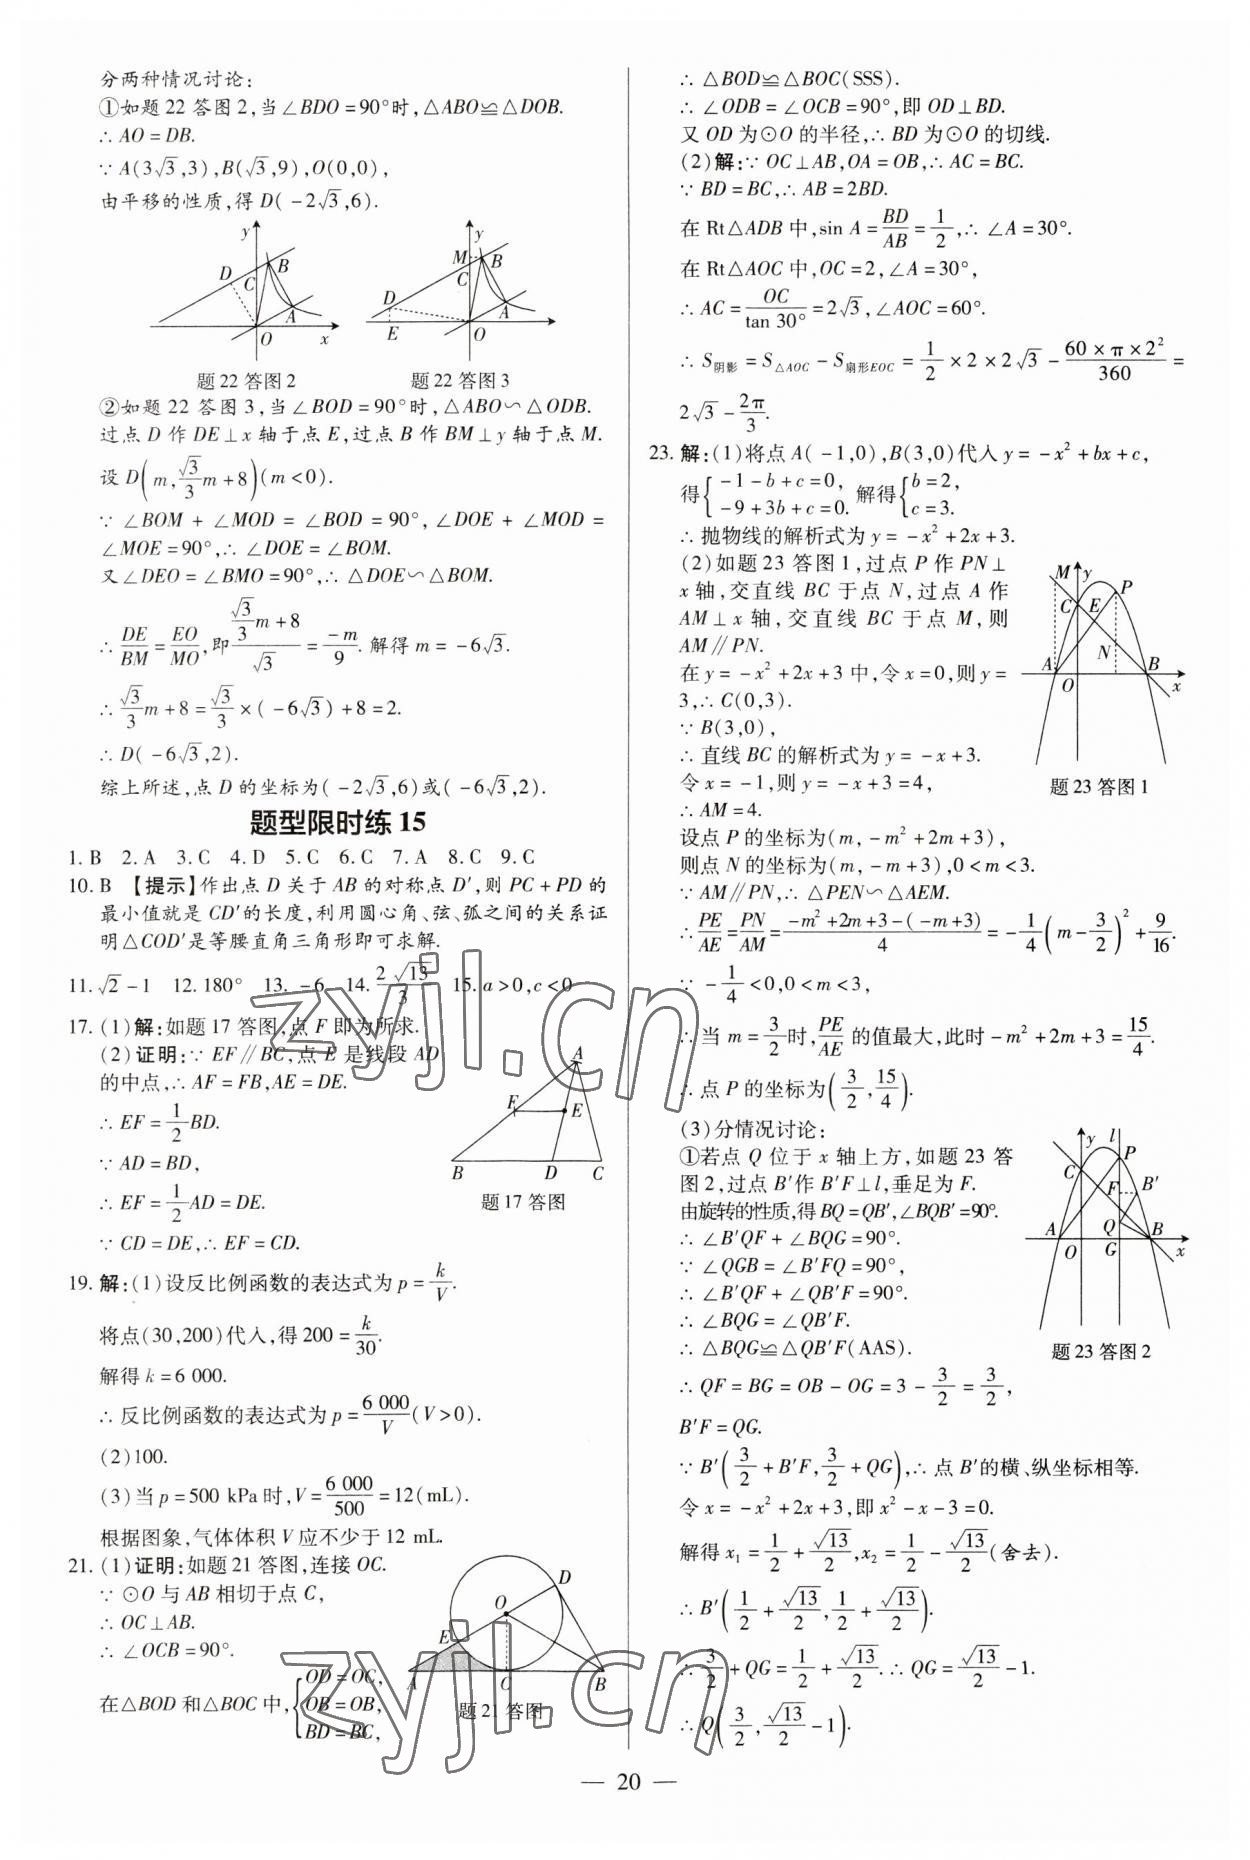 分两种情况讨论:
①如题 22 答图 2,当∠BDO=90°时,△ABO≌△DOB.
∴ AO=DB.
∵ A(3√3,3),B(√3,9),O(0,0),
由平移的性质,得 D(-2√3,6).
y
D
C
B
A
O
x
题 22 答图 2
y
M
B
C
D
A
E
O
题 22 答图 3
②如题 22 答图 3,当∠BOD=90°时,△ABO∽△ODB.
过点 D 作 DE⊥x 轴于点 E,过点 B 作 BM⊥y 轴于点 M.
设 D(m,√3/3 m+8)(m<0).
∵ ∠BOM + ∠MOD = ∠BOD = 90°,∠DOE + ∠MOD =
∠MOE=90°,∴ ∠DOE=∠BOM.
又∠DEO=∠BMO=90°,∴ △DOE∽△BOM.
∴ DE/BM=EO/MO,即 (√3/3 m+8)/√3=-m/9.解得 m=-6√3.
∴ √3/3 m+8=√3/3×(-6√3)+8=2.
∴ D(-6√3,2).
综上所述,点 D 的坐标为(-2√3,6)或(-6√3,2).
题型限时练 15
1. B 2. A 3. C 4. D 5. C 6. C 7. A 8. C 9. C
10. B 【提示】作出点 D 关于 AB 的对称点 D′,则 PC+PD 的
最小值就是 CD′的长度,利用圆心角、弦、弧之间的关系证
明△COD′是等腰直角三角形即可求解.
11. √2-1 12. 180° 13. -6 14. 2√13/3 15. a>0,c<0
17. (1)解:如题 17 答图,点 F 即为所求.
(2)证明:∵ EF∥BC,点 E 是线段 AD
的中点,∴ AF=FB,AE=DE.
∴ EF=1/2 BD.
∵ AD=BD,
∴ EF=1/2 AD=DE.
∵ CD=DE,∴ EF=CD.
A
F
E
B
D
C
题 17 答图
19. 解:(1)设反比例函数的表达式为 p=k/V.
将点(30,200)代入,得 200=k/30.
解得 k=6 000.
∴ 反比例函数的表达式为 p=6 000/V(V>0).
(2)100.
(3)当 p=500 kPa 时,V=6 000/500=12(mL).
根据图象,气体体积 V 应不少于 12 mL.
21. (1)证明:如题 21 答图,连接 OC.
∵ ⊙O 与 AB 相切于点 C,
∴ OC⊥AB.
∴ ∠OCB=90°.
在△BOD 和△BOC 中,{OD=OC,
OB=OB,
BD=BC,
D
O
E
A
C
B
题 21 答图
∴ △BOD≌△BOC(SSS).
∴ ∠ODB=∠OCB=90°,即 OD⊥BD.
又 OD 为⊙O 的半径,∴ BD 为⊙O 的切线.
(2)解:∵ OC⊥AB,OA=OB,∴ AC=BC.
∵ BD=BC,∴ AB=2BD.
在 Rt△ADB 中,sin A=BD/AB=1/2,∴ ∠A=30°.
在 Rt△AOC 中,OC=2,∠A=30°,
∴ AC=OC/tan 30°=2√3,∠AOC=60°.
∴ S阴影=S△AOC-S扇形EOC=1/2×2×2√3-60×π×2²/360=
2√3-2π/3.
23. 解:(1)将点 A(-1,0),B(3,0)代入 y=-x²+bx+c,
得{-1-b+c=0, -9+3b+c=0. 解得{b=2, c=3.
∴ 抛物线的解析式为 y=-x²+2x+3.
(2)如题 23 答图 1,过点 P 作 PN⊥
x 轴,交直线 BC 于点 N,过点 A 作
AM⊥x 轴,交直线 BC 于点 M,则
AM∥PN.
在 y=-x²+2x+3 中,令 x=0,则 y=
3,∴ C(0,3).
∵ B(3,0),
∴ 直线 BC 的解析式为 y=-x+3.
令 x=-1,则 y=-x+3=4,
∴ AM=4.
M
y
P
C
E
N
A
O
B
x
题 23 答图 1
设点 P 的坐标为(m,-m²+2m+3),
则点 N 的坐标为(m,-m+3),0<m<3.
∵ AM∥PN,∴ △PEN∽△AEM.
∴ PE/AE=PN/AM=(-m²+2m+3-(-m+3))/4=-1/4(m-3/2)²+9/16.
∵ -1/4<0,0<m<3,
∴ 当 m=3/2时,PE/AE的值最大,此时-m²+2m+3=15/4.
∴ 点 P 的坐标为(3/2,15/4).
(3)分情况讨论:
①若点 Q 位于 x 轴上方,如题 23 答
图 2,过点 B′作 B′F⊥l,垂足为 F.
由旋转的性质,得 BQ=QB′,∠BQB′=90°.
∴ ∠B′QF+∠BQG=90°.
∵ ∠QGB=∠B′FQ=90°,
∴ ∠B′QF+∠QB′F=90°.
∴ ∠BQG=∠QB′F.
∴ △BQG≌△QB′F(AAS).
y
l
C
P
F
B′
A
Q
B
O
G
x
题 23 答图 2
∴ QF=BG=OB-OG=3-3/2=3/2,
B′F=QG.
∵ B′(3/2+B′F,3/2+QG),∴ 点 B′的横、纵坐标相等.
令 x=-x²+2x+3,即 x²-x-3=0.
解得 x₁=1/2+√13/2,x₂=1/2-√13/2(舍去).
∴ B′(1/2+√13/2,1/2+√13/2).
∴ 3/2+QG=1/2+√13/2.∴ QG=√13/2-1.
∴ Q(3/2,√13/2-1).
— 20 —
zyjl.cn
zyjl.cn